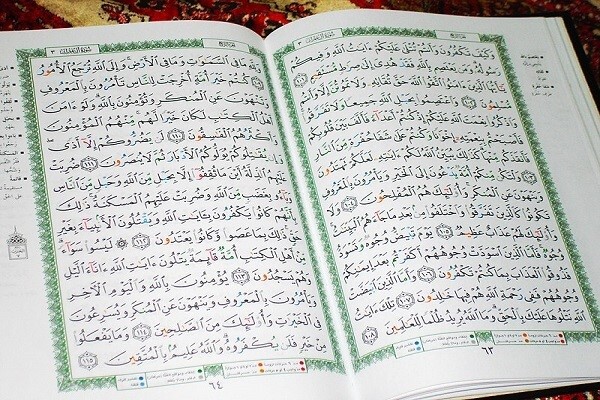 سورة آل عمران
٦٣
وَكَيْفَ تَكْفُرُونَ وَأَنتُمْ تُتْلَىٰ عَلَيْكُمْ ءَايَٰتُ ٱللَّهِ وَفِيكُمْ
رَسُولُهُۥ وَمَن يَعْتَصِم بِٱللَّهِ فَقَدْ هُدِىَ إِلَىٰ صِرَٰطٍ مُّسْتَقِيمٍ ١٠١
يَٰٓأَيُّهَا ٱلَّذِينَ ءَامَنُوا۟ ٱتَّقُوا۟ ٱللَّهَ حَقَّ تُقَاتِهِۦ وَلَا تَمُوتُنَّ إِلَّا وَأَنتُم
مُّسْلِمُونَ ١٠٢ وَٱعْتَصِمُوا۟ بِحَبْلِ ٱللَّهِ جَمِيعًا وَلَا تَفَرَّقُوا۟
وَٱذْكُرُوا۟ نِعْمَتَ ٱللَّهِ عَلَيْكُمْ إِذْ كُنتُمْ أَعْدَآءً فَأَلَّفَ بَيْنَ قُلُوبِكُمْ
فَأَصْبَحْتُم بِنِعْمَتِهِۦٓ إِخْوَٰنًا وَكُنتُمْ عَلَىٰ شَفَا حُفْرَةٍ مِّنَ ٱلنَّارِ
فَأَنقَذَكُم مِّنْهَا كَذَٰلِكَ يُبَيِّنُ ٱللَّهُ لَكُمْ ءَايَٰتِهِۦ لَعَلَّكُمْ تَهْتَدُونَ
١٠٣ وَلْتَكُن مِّنكُمْ أُمَّةٌ يَدْعُونَ إِلَى ٱلْخَيْرِ وَيَأْمُرُونَ بِٱلْمَعْرُوفِ
وَيَنْهَوْنَ عَنِ ٱلْمُنكَرِ وَأُو۟لَٰٓئِكَ هُمُ ٱلْمُفْلِحُونَ ١٠٤ وَلَا
تَكُونُوا۟ كَٱلَّذِينَ تَفَرَّقُوا۟ وَٱخْتَلَفُوا۟ مِنۢ بَعْدِ مَا جَآءَهُمُ ٱلْبَيِّنَٰتُ
وَأُو۟لَٰٓئِكَ لَهُمْ عَذَابٌ عَظِيمٌ ١٠٥ يَوْمَ تَبْيَضُّ وُجُوهٌ وَتَسْوَدُّ
وُجُوهٌ فَأَمَّا ٱلَّذِينَ ٱسْوَدَّتْ وُجُوهُهُمْ أَكَفَرْتُم بَعْدَ إِيمَٰنِكُمْ
فَذُوقُوا۟ ٱلْعَذَابَ بِمَا كُنتُمْ تَكْفُرُونَ ١٠٦ وَأَمَّا ٱلَّذِينَ ٱبْيَضَّتْ
وُجُوهُهُمْ فَفِى رَحْمَةِ ٱللَّهِ هُمْ فِيهَا خَٰلِدُونَ ١٠٧ تِلْكَ ءَايَٰتُ
ٱللَّهِ نَتْلُوهَا عَلَيْكَ بِٱلْحَقِّ وَمَا ٱللَّهُ يُرِيدُ ظُلْمًا لِّلْعَٰلَمِينَ ١٠٨
سورة آل عمران
٦٤
وَلِلَّهِ مَا فِى ٱلسَّمَٰوَٰتِ وَمَا فِى ٱلْأَرْضِ وَإِلَى ٱللَّهِ تُرْجَعُ ٱلْأُمُورُ
١٠٩ كُنتُمْ خَيْرَ أُمَّةٍ أُخْرِجَتْ لِلنَّاسِ تَأْمُرُونَ بِٱلْمَعْرُوفِ
وَتَنْهَوْنَ عَنِ ٱلْمُنكَرِ وَتُؤْمِنُونَ بِٱللَّهِ وَلَوْ ءَامَنَ
أَهْلُ ٱلْكِتَٰبِ لَكَانَ خَيْرًا لَّهُم مِّنْهُمُ ٱلْمُؤْمِنُونَ
وَأَكْثَرُهُمُ ٱلْفَٰسِقُونَ ١١٠ لَن يَضُرُّوكُمْ إِلَّآ أَذًى
وَإِن يُقَٰتِلُوكُمْ يُوَلُّوكُمُ ٱلْأَدْبَارَ ثُمَّ لَا يُنصَرُونَ ١١١ ضُرِبَتْ
عَلَيْهِمُ ٱلذِّلَّةُ أَيْنَ مَا ثُقِفُوٓا۟ إِلَّا بِحَبْلٍ مِّنَ ٱللَّهِ وَحَبْلٍ مِّنَ ٱلنَّاسِ
وَبَآءُو بِغَضَبٍ مِّنَ ٱللَّهِ وَضُرِبَتْ عَلَيْهِمُ ٱلْمَسْكَنَةُ ذَٰلِكَ
بِأَنَّهُمْ كَانُوا۟ يَكْفُرُونَ بِـَٔايَٰتِ ٱللَّهِ وَيَقْتُلُونَ ٱلْأَنۢبِيَآءَ بِغَيْرِ
حَقٍّ ذَٰلِكَ بِمَا عَصَوا۟ وَّكَانُوا۟ يَعْتَدُونَ ١١٢ ۞ لَيْسُوا۟ سَوَآءً
مِّنْ أَهْلِ ٱلْكِتَٰبِ أُمَّةٌ قَآئِمَةٌ يَتْلُونَ ءَايَٰتِ ٱللَّهِ ءَانَآءَ ٱلَّيْلِ
وَهُمْ يَسْجُدُونَ ١١٣ يُؤْمِنُونَ بِٱللَّهِ وَٱلْيَوْمِ ٱلْأَخِرِ
وَيَأْمُرُونَ بِٱلْمَعْرُوفِ وَيَنْهَوْنَ عَنِ ٱلْمُنكَرِ وَيُسَٰرِعُونَ
فِى ٱلْخَيْرَٰتِ وَأُو۟لَٰٓئِكَ مِنَ ٱلصَّٰلِحِينَ ١١٤ وَمَا يَفْعَلُوا۟
مِنْ خَيْرٍ فَلَن يُكْفَرُوهُ وَٱللَّهُ عَلِيمٌۢ بِٱلْمُتَّقِينَ ١١٥